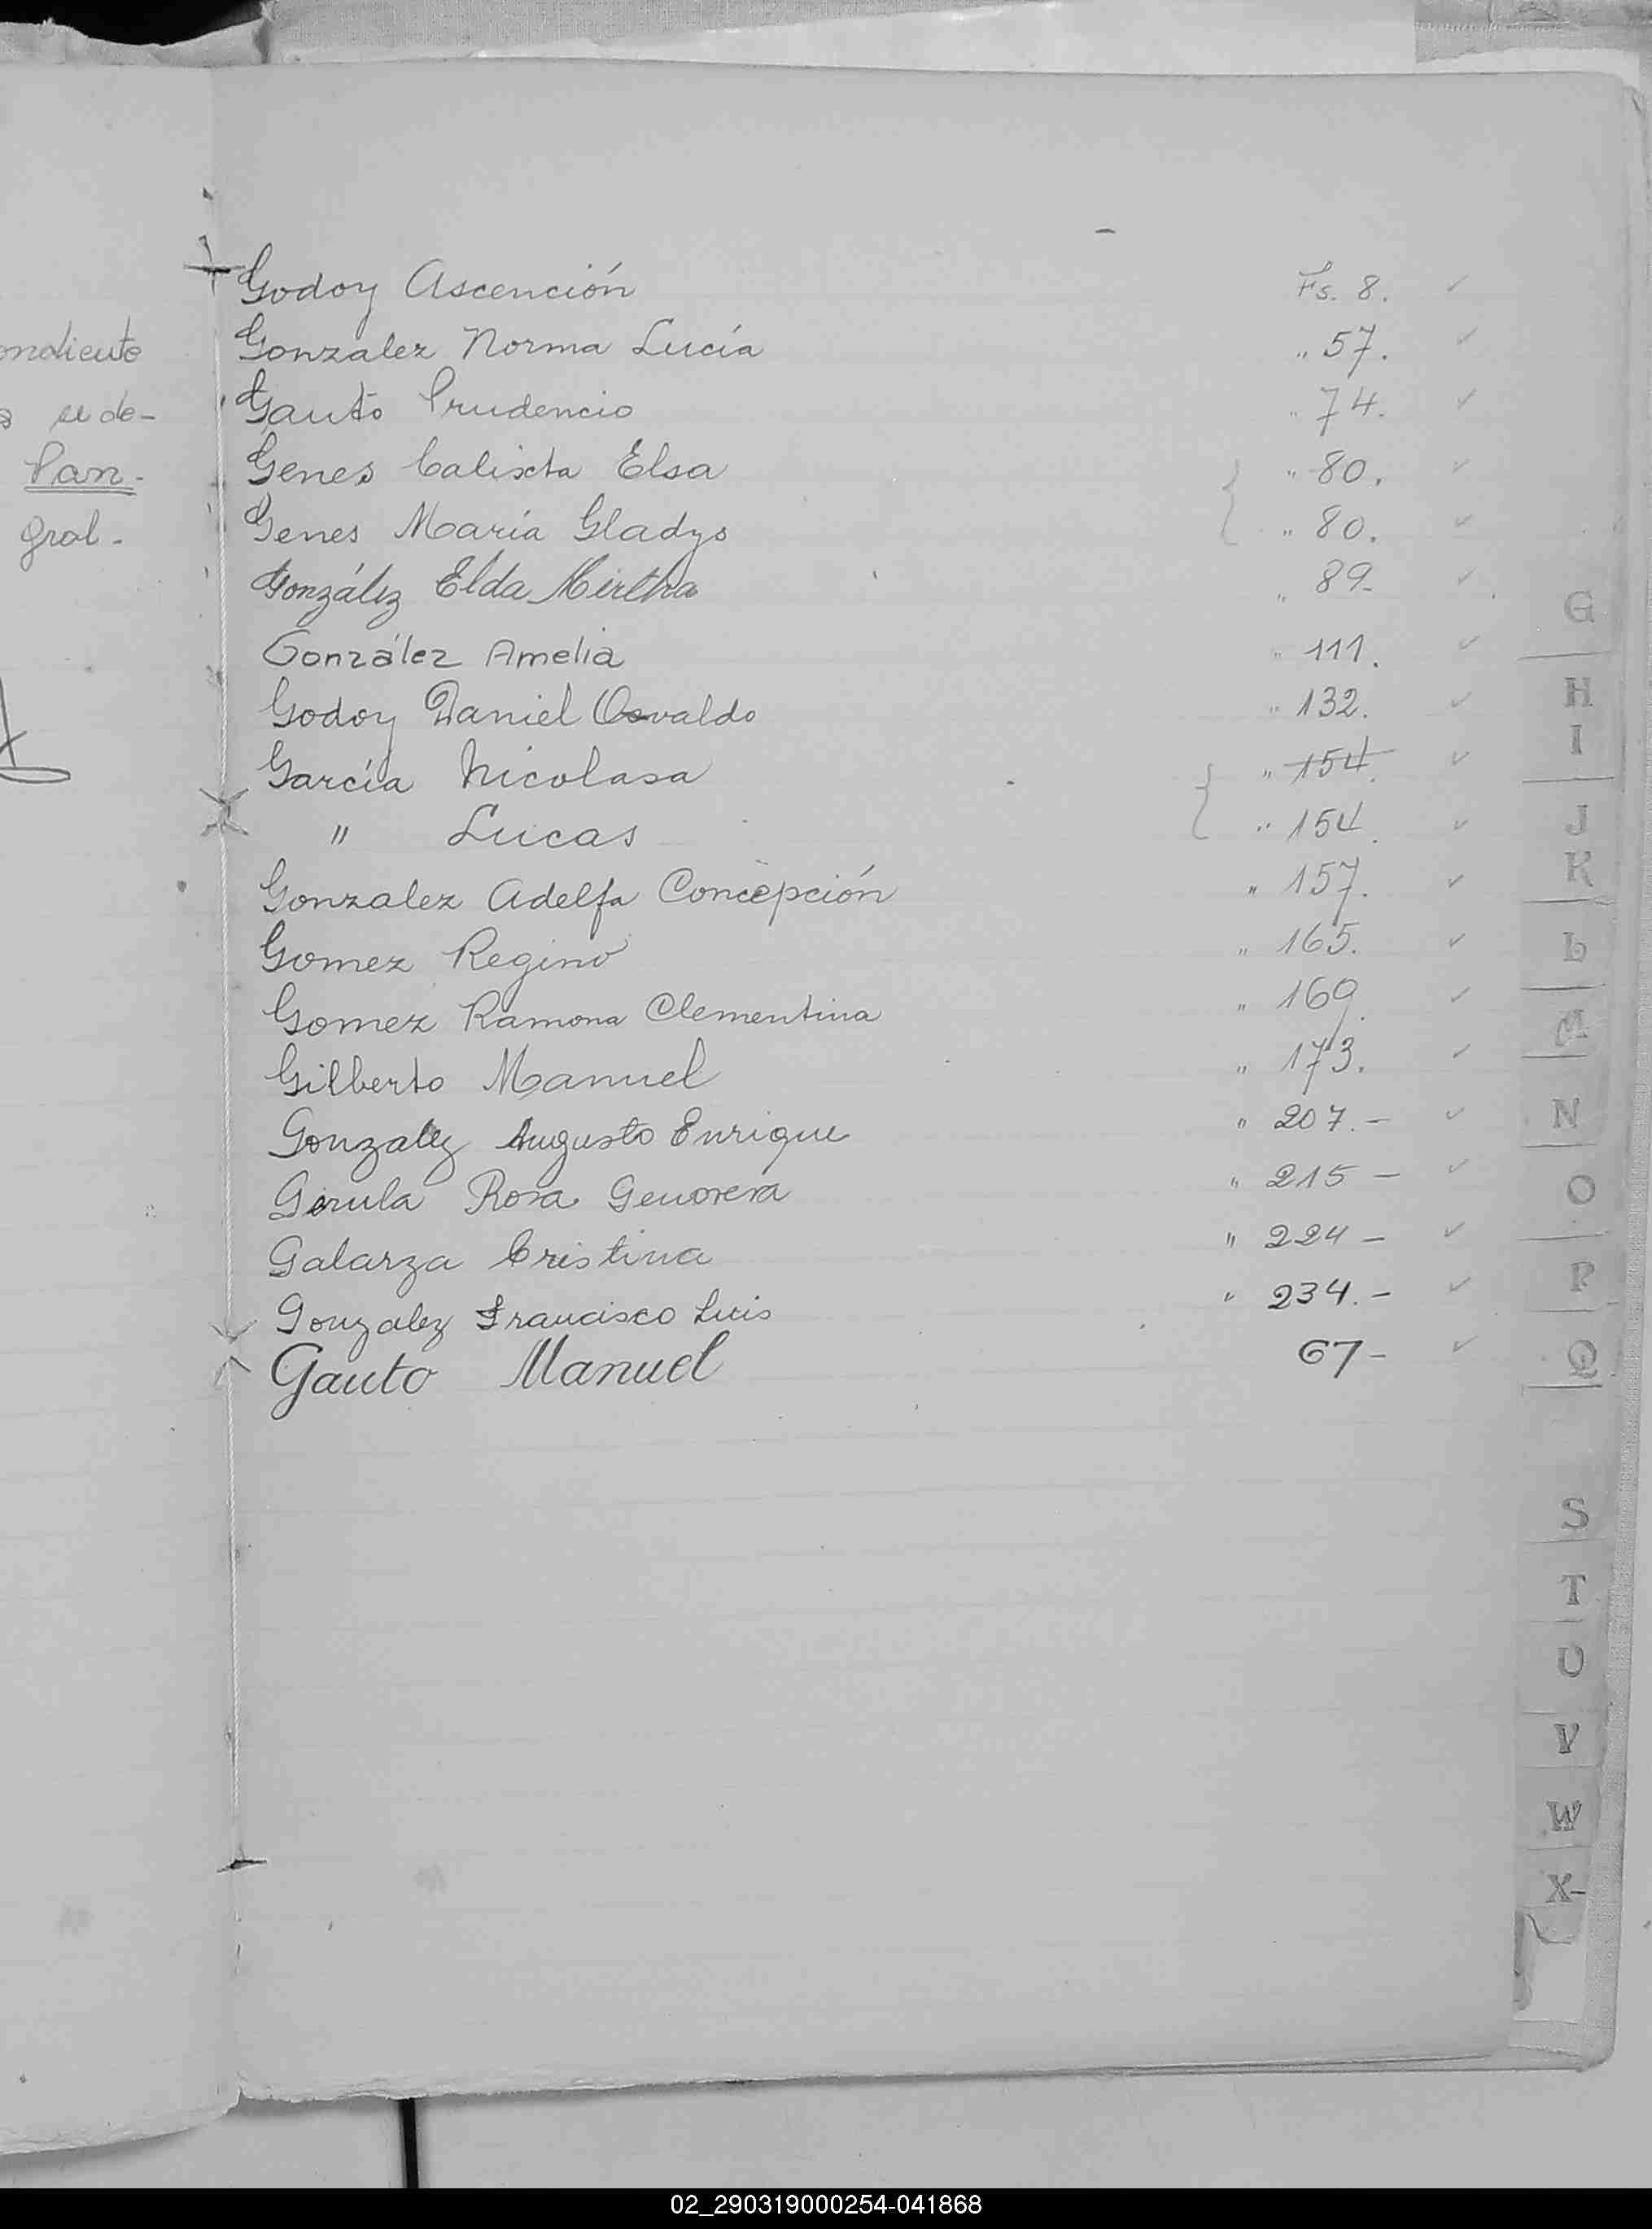 ondiente
se de-
Par-
gral-
Godoy Ascención Fs. 8.
Gonzalez Norma Lucía " 57.
Gauto Prudencio " 74.
Genes Calixta Elsa " 80.
Genes María Gladys " 80.
González Elda Mirtha " 89-
González Amelia " 111.
Godoy Daniel Osvaldo " 132.
García Nicolasa " 154.
" Lucas " 154.
Gonzalez Adelfa Concepción " 157.
Gomez Regino " 165.
Gomez Ramona Clementina " 169.
Gilberto Manuel " 173.
Gonzalez Augusto Enrique " 207.-
Rosa Genoveva " 215-
Galarza Cristina " 224-
Gonzalez Francisco Luis " 234.-
Gauto Manuel 67-
G
H
I
J
K
L
M
N
O
P
Q
S
T
U
V
W
X-
02_290319000254-041868